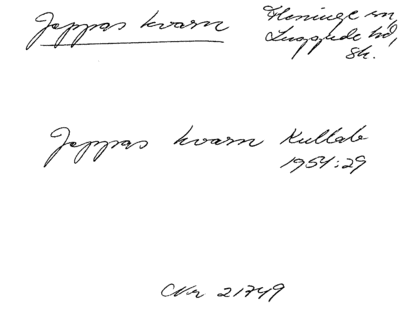 Jeppas kvarn Fleninge sn,
Luggude hd,
Sk.
Jeppas kvarn Kullab
1954:29
Nr 21749